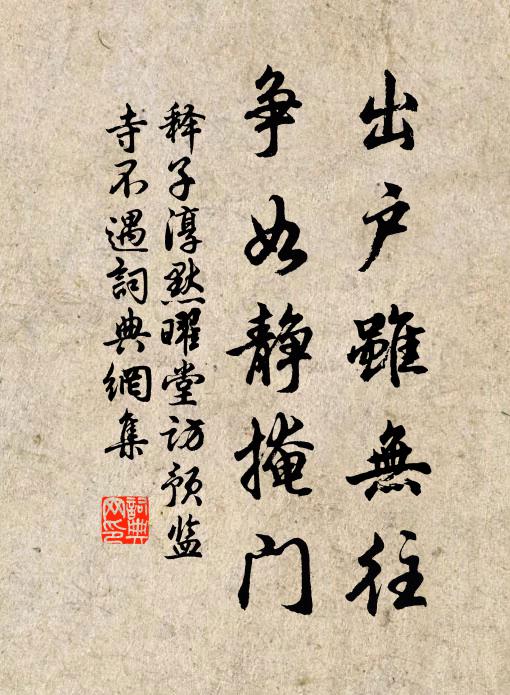 出户雖無往
争如静掩门
释子淳默曜堂访预监
寺不遇詞典網集
詞典
网印